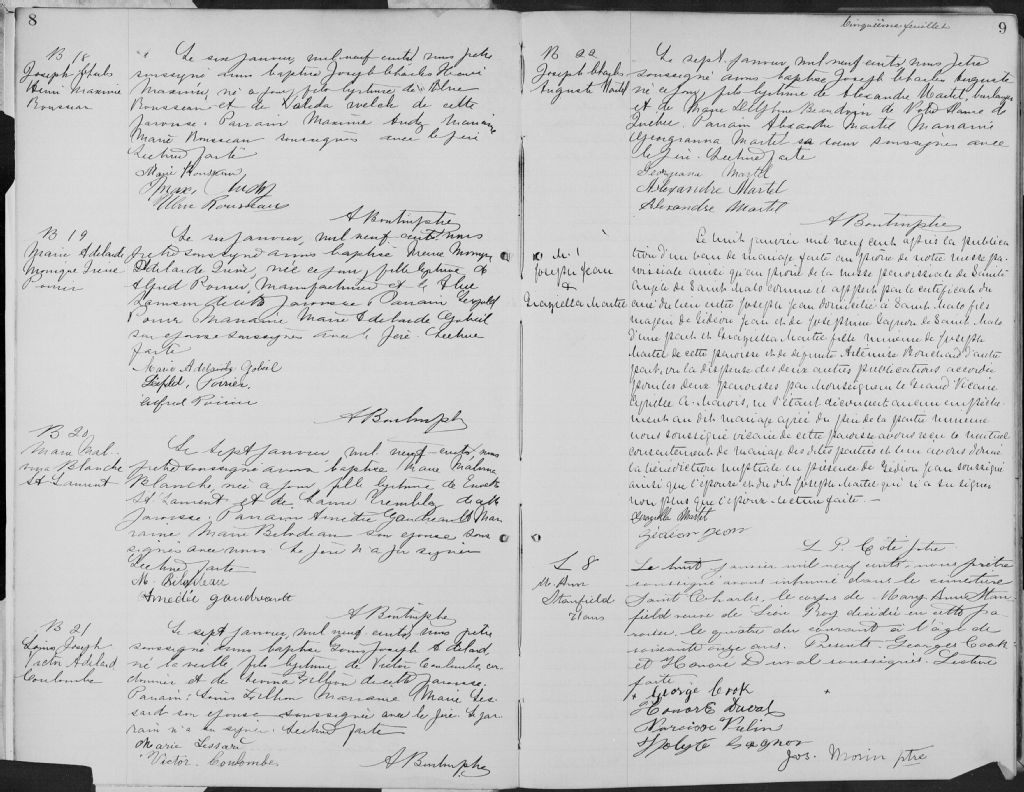 8
B 18
Joseph Charles
Henri Maxime
Rousseau
Le six janvier, mil neuf cent, nous prêtre
soussigné avons baptisé Joseph Charles Henri
Maxime, né ce jour, fils légitime de Ulric
Rousseau et de Valeda de cette
paroisse. Parrain Maxime marraine
Marie Rousseau soussignés avec le père
Lecture faite
Marie Rousseau
Ulric Rousseau
A Bontin ptre
B 19
Marie Adelaide
Monique Irene
Poirier
Le six janvier, mil neuf cent, nous
prêtre soussigné avons baptisé Marie Monique
Adelaide Irene, née ce jour, fille légitime de
Alfred Poirier, Manufacturier et de
de cette paroisse Parrain Leopold
Poirier Marraine Marie Adelaide Gabeil
son épouse soussignés avec le père. Lecture
faite
Marie Adelaide Gabeil
Poirier
Alfred Poirier
A Bontin ptre
B 20
Marie Mal-
vina Blanche
St Laurent
Le sept janvier, mil neuf cent, nous
prêtre soussigné avons baptisé Marie Malvina
Blanche, née ce jour, fille légitime de
St Laurent et de Tremblay de cette
paroisse Parrain Amédée Gaudreault Mar-
raine, Marie Bilodeau son épouse sous
signés avec nous Le père n'a pu signer
Lecture faite
M. Bilodeau
Amedée gaudreault
A Bontin ptre
B 21
Louis Joseph
Victor Adelard
Coulombe
Le sept janvier, mil neuf cent, nous prêtre
soussigné avons baptisé Louis Joseph Adelard
né la veille, fils légitime de Victor Coulombe, cor
donnier et de de cette paroisse.
Parrain: Louis marraine Marie Les-
sard son épouse soussignée avec le père. Le par-
rain n'a su signer. Lecture faite
Marie Lessard
Victor Coulombe
A Bontin ptre
Cinquième feuillet
9
B 22
Joseph Charles
Auguste Martel
Le sept janvier, mil neuf cent, nous prêtre
soussigné avons baptisé Joseph Charles Auguste
né ce jour, fils légitime de Alexandre Martel, boulanger
et de Marie Delphine Beaudoin de Notre Dame de
Québec. Parrain Alexandre Martel Marraine
Georgianna Martel sa soeur soussignés avec
le père. Lecture faite
Georgiana Martel
Alexandre Martel
Alexandre Martel
A Bontin ptre
M 1
Joseph Jean
&
Graziella Martel
Le huit janvier mil neuf cent après la publica
tion d'un ban de mariage faite au prône de notre messe pa-
roissiale ainsi qu'au prône de la messe paroissiale de Sainte
Angèle de Saint Malo comme il appert par le certificat du
curé du lieu entre Joseph Jean domicilié à Saint Malo fils
majeur de Gédéon Jean et de Josephine Gagnon de Saint Malo
d'une part, et Graziella Martel fille mineure de Joseph
Martel de cette paroisse et de défunte Artémise Bouchard d'autre
part, vu la dispense des deux autres publications accordée
pour les deux paroisses par Monseigneur le Grand Vicaire
Cyrille A. Marois, ne s'étant découvert aucun empêche-
ment au dit mariage agréé du père de la partie mineure
nous soussigné vicaire de cette paroisse avons reçu le mutuel
consentement de mariage des dites parties et leur avons donné
la bénédiction nuptiale en présence de Gédéon Jean soussigné
ainsi que l'épouse et du dit Joseph Martel qui n'a su signer
non plus que l'époux. Lecture faite.
Graziella Martel
Gédéon Jean
L P. Côté ptre
S 8
M. Ann
Stanfield
71 ans
Le huit janvier mil neuf cent, nous prêtre
soussigné avons inhumé dans le cimetière
Saint Charles, le corps de Mary Ann Stan
field veuve de Roy décédée en cette pa
roisse, le quatre du courant à l'âge de
soixante onze ans. Présents Georges Cook
et Honoré Duval soussignés. Lecture
faite
+ George Cook +
Honoré Duval
Narcisse
Hypolyte Gagnon
Jos. Morin ptre